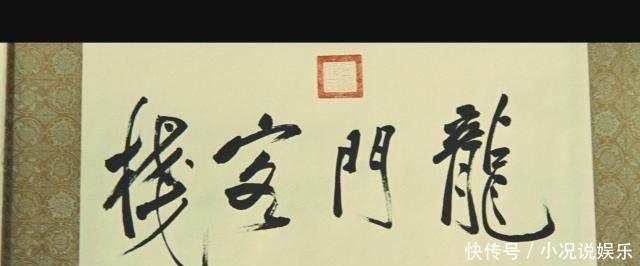 龍門客棧
快传号/小况说娱乐